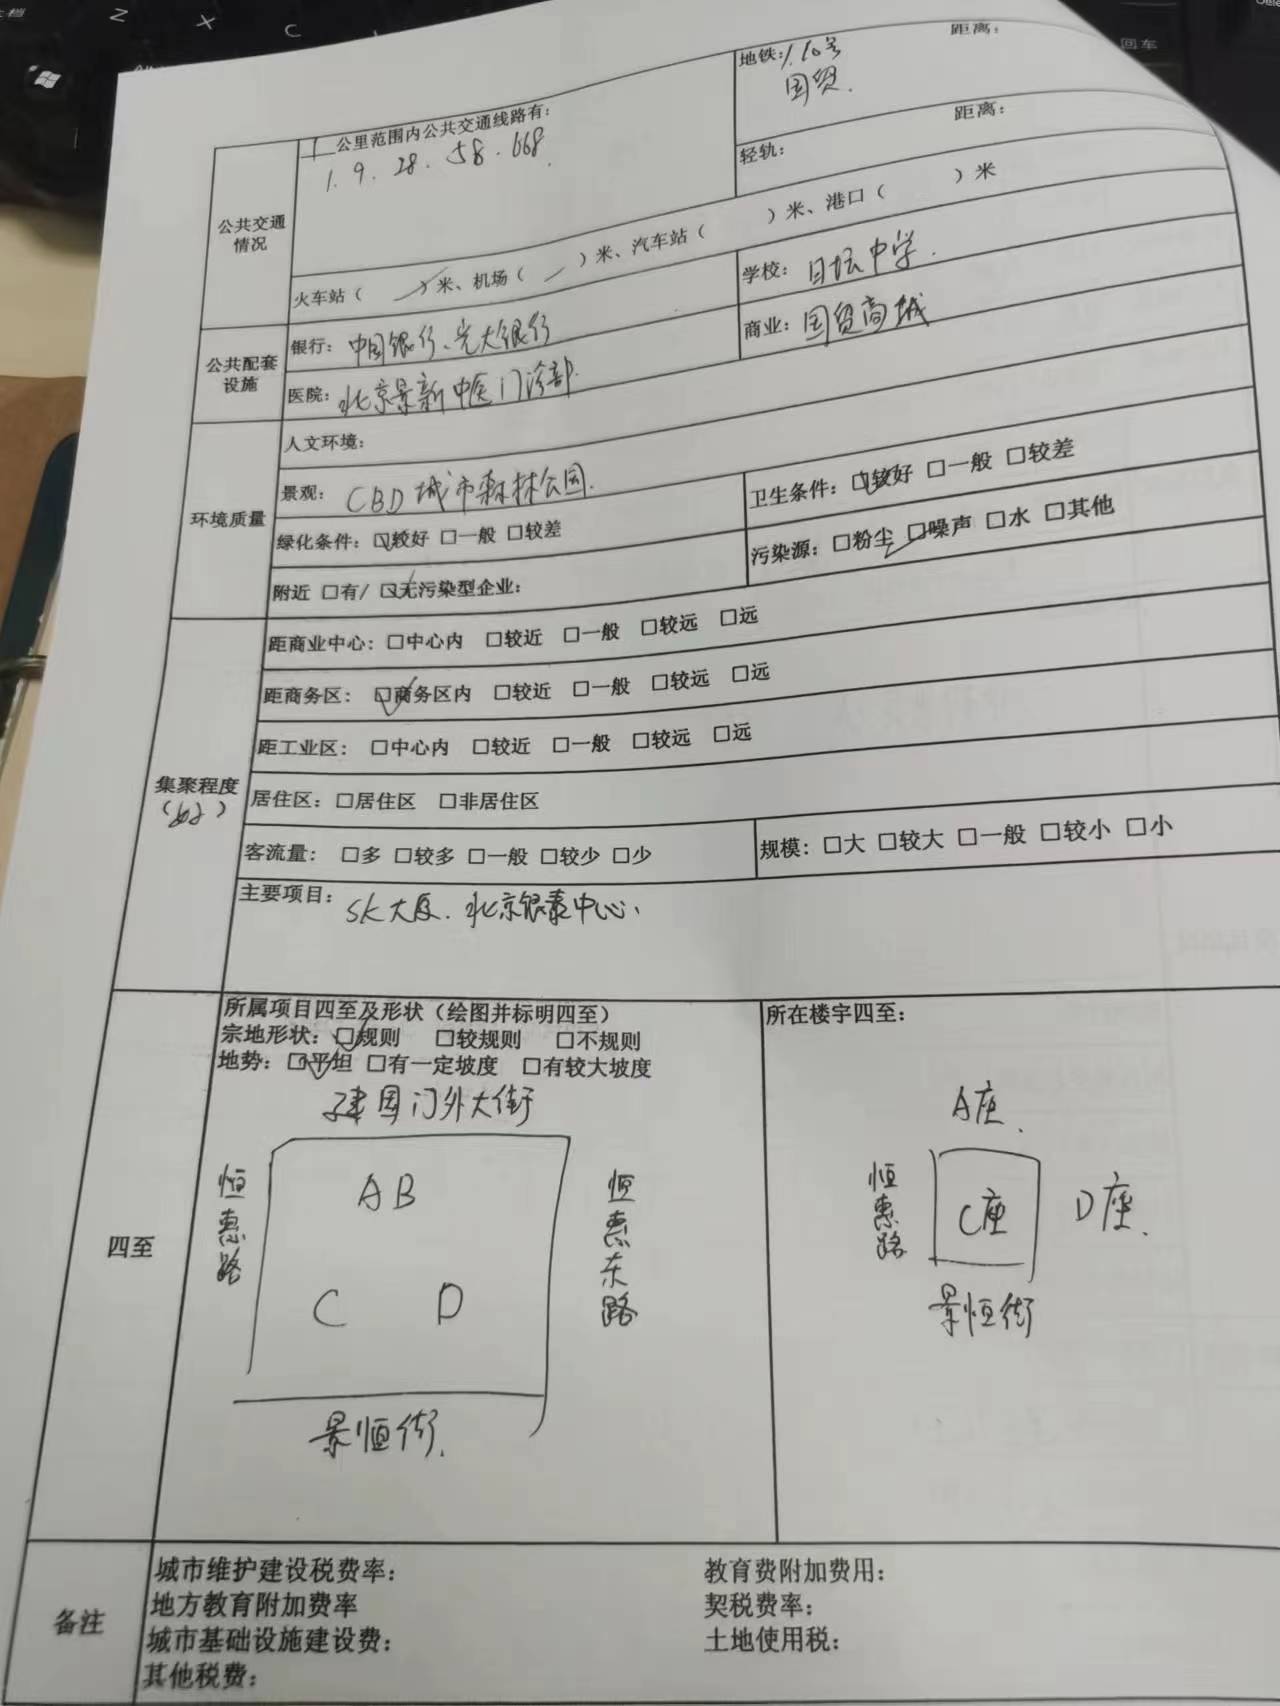 Z X C
回车
1 公里范围内公共交通线路有：
1. 9. 28. 58. 668.
地铁：1.10号 距离：
国贸.
轻轨： 距离：
公共交通
情况
火车站（ ）米、机场（ ）米、汽车站（ ）米、港口（ ）米
公共配套
设施
银行：中国银行、光大银行
学校：日坛中学.
医院：北京景新中医门诊部.
商业：国贸商城
环境质量
人文环境：
景观：CBD城市森林公园.
绿化条件：☑较好 □一般 □较差
卫生条件：☑较好 □一般 □较差
附近 □有/ ☑无污染型企业：
污染源：□粉尘 ☑噪声 □水 □其他
集聚程度
（好）
距商业中心：□中心内 □较近 □一般 □较远 □远
距商务区：☑商务区内 □较近 □一般 □较远 □远
距工业区：□中心内 □较近 □一般 □较远 □远
居住区：□居住区 □非居住区
客流量：□多 □较多 □一般 □较少 □少
规模：□大 □较大 □一般 □较小 □小
主要项目：SK大厦. 北京银泰中心、
四至
所属项目四至及形状（绘图并标明四至）
宗地形状：☑规则 □较规则 □不规则
地势：☑平坦 □有一定坡度 □有较大坡度
建国门外大街
恒惠路
A B
C D
恒惠东路
景恒街.
所在楼宇四至：
A座.
恒惠路
C座
D座.
景恒街
备注
城市维护建设税费率：
教育费附加费用：
地方教育附加费率
契税费率：
城市基础设施建设费：
土地使用税：
其他税费：